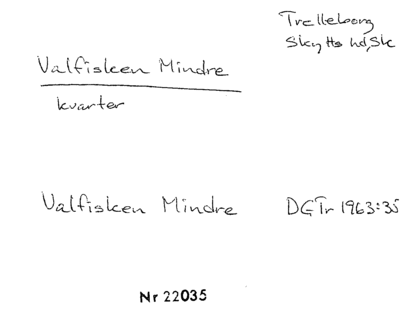 Trelleborg
Skytts hd, Sk
Valfisken Mindre
kvarter
Valfisken Mindre DGTr 1963:35
Nr 22035